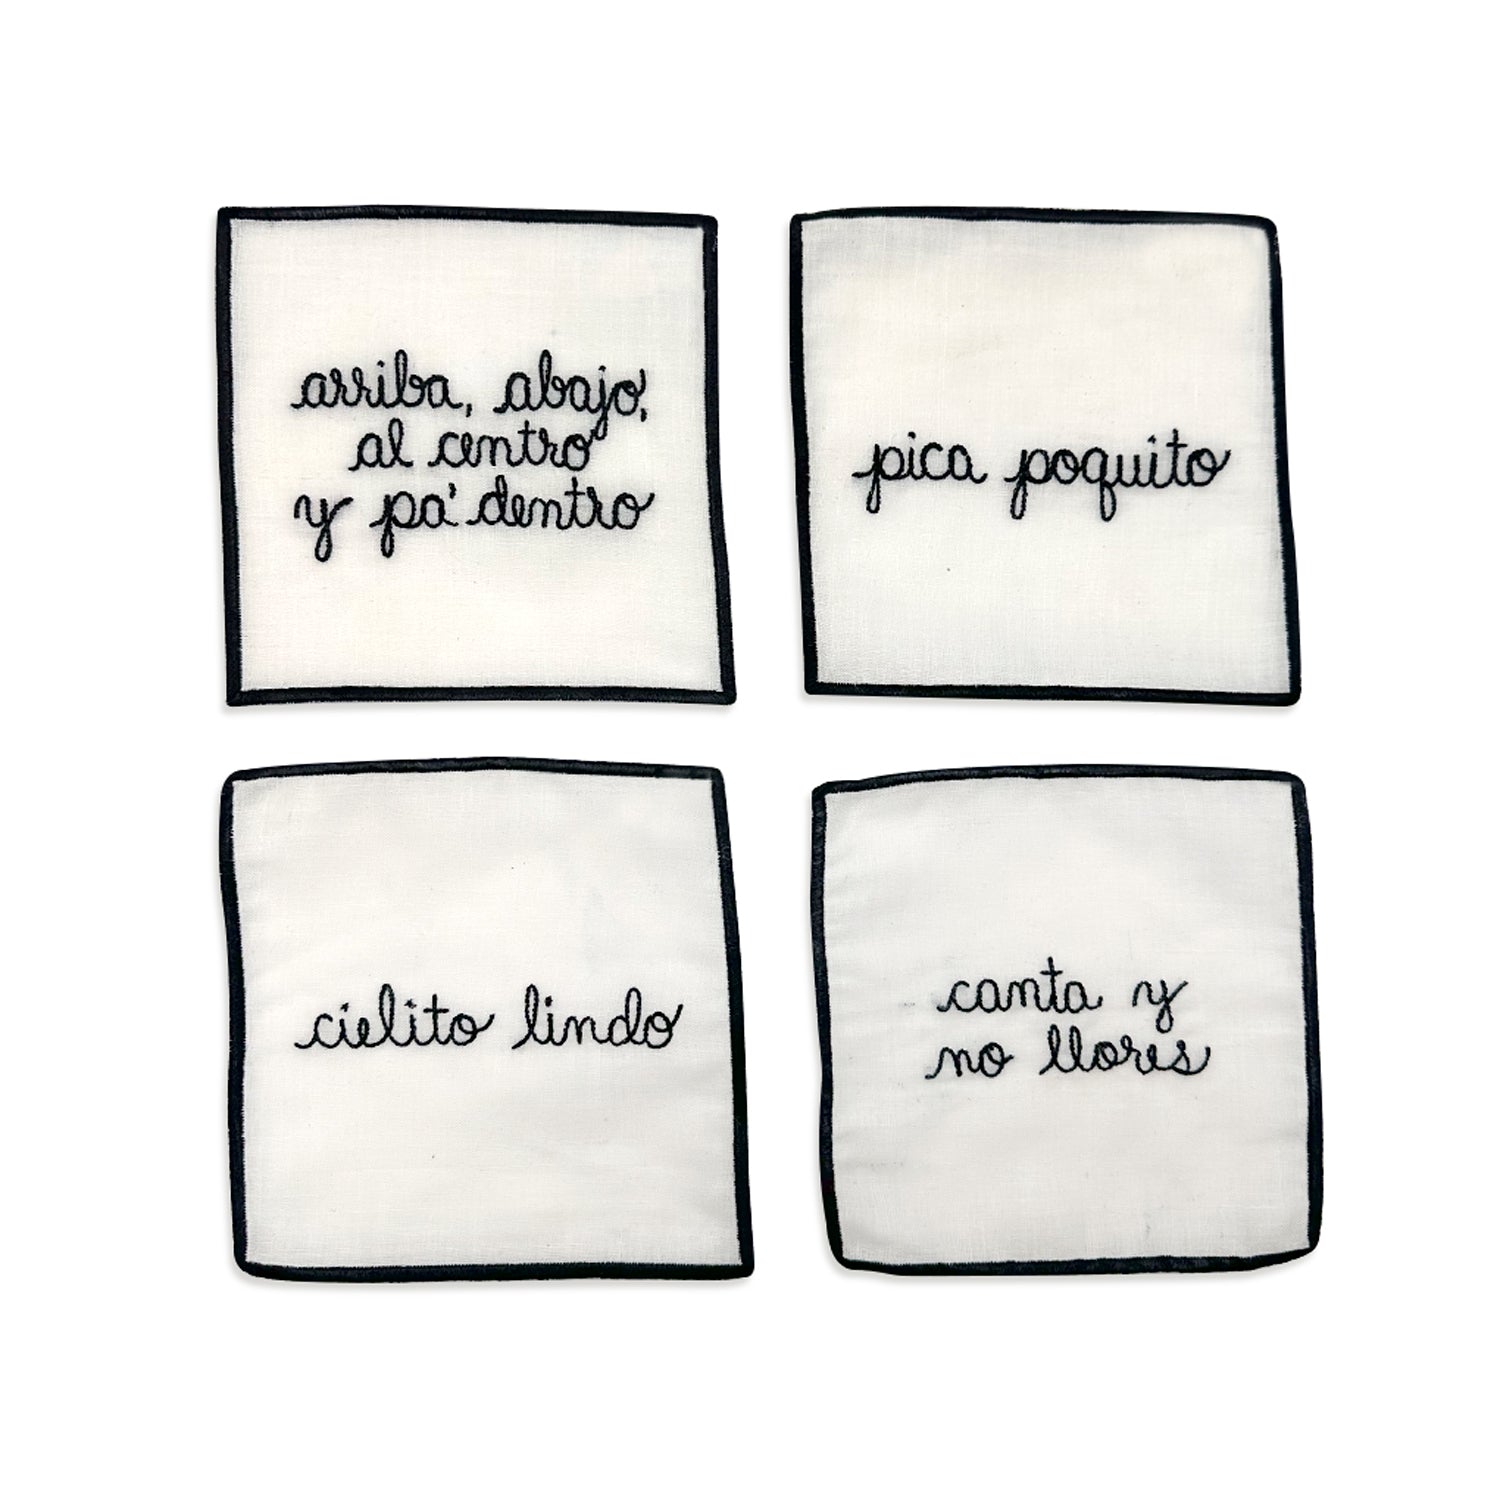 arriba, abajo,
al centro
y pa' dentro
pica poquito
cielito lindo
canta y
no llores